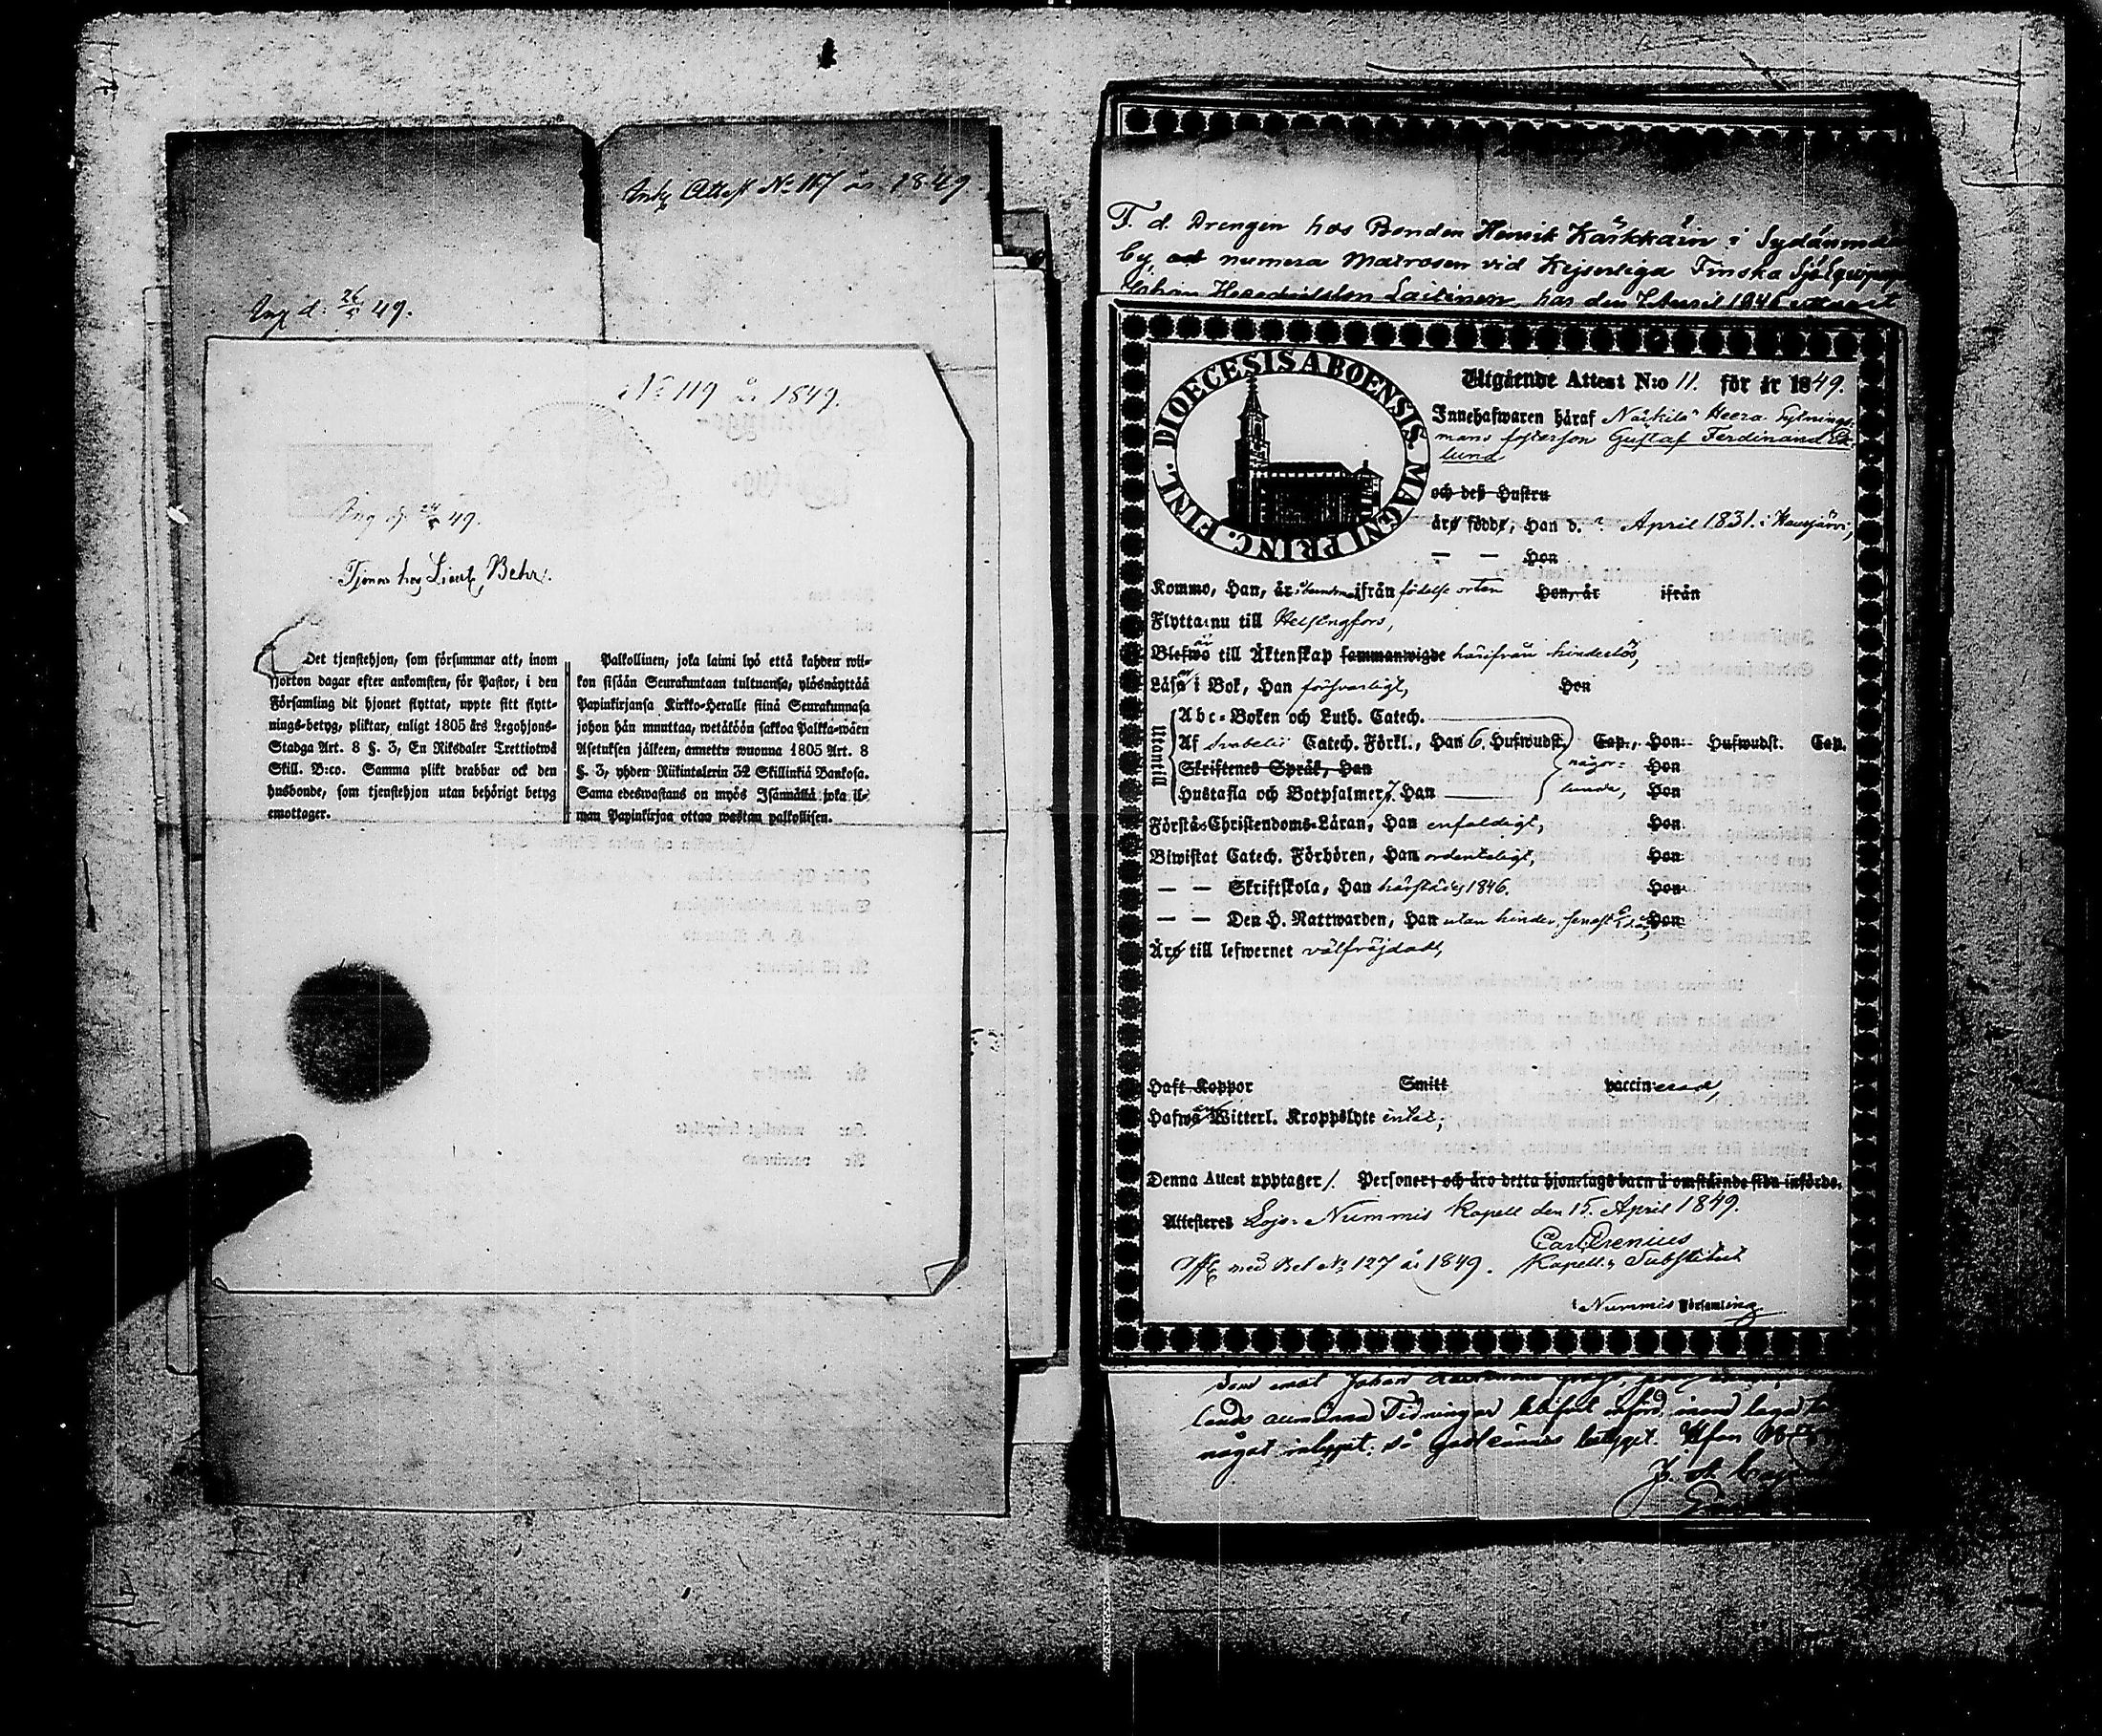 Attest No 117 år 1849
Ing d. 26/5 49.
No 119 år 1849.
Ing d. 24/5 49.
Tjenar hos Lieut. Behr.
Det tjenstehjon, som försummar att, inom
fjorton dagar efter ankomsten, för Pastor, i den
Församling dit hjonet flyttat, uppte sitt flytt-
nings-betyg, pliktar, enligt 1805 års Legohjons-
Stadga Art. 8 §. 3, En Riksdaler Trettiotwå
Skill. B:co. Samma plikt drabbar ock den
husbonde, som tjenstehjon utan behörigt betyg
emottager.
Palkollinen, joka laimi lyö että kahden wii-
kon sisään Seurakuntaan tultuansa, ylösnäyttää
Papinkirjansa Kirkko-Heralle siinä Seurakunnasa
johon hän muuttaa, wetäköön sakkoa Palkka-wäen
Asetuksen jälkeen, annettu wuonna 1805 Art. 8
§. 3, yhden Riikintalerin 32 Skillinkiä Bankosa.
Sama edeswastaus on myös Isännällä joka il-
man Papinkirjaa ottaa wastan palkollisen.
F. d. Drengen hos Bonden Henrik Kärkkäin i
by, numera Matrosen vid Kejserliga Finska Sjö
Laitinen har den
DIOECESIS ABOENSIS. MAGNI PRINC. FINL.
Utgående Attest N:o 11. för år 1849.
Innehafwaren häraf Näkkilä
mans fosterson Gustaf Ferdinand Ek-
lund
och deß Hustru
äro födde, Han d. ? April 1831. i Hausjärvi,
— — Hon
Kommo, Han, är ifrån födelse orten Hon, är ifrån
Flytta nu till Helsingfors,
Blefwo till Äktenskap sammanwigde härifrån hinderlös,
Läsa i Bok, Han försvarligt, Hon
Utantill
Abc-Boken och Luth. Catech.
Af Svebelii Catech. Förkl., Han 6. Hufwudst. Cap., Hon Hufwudst. Cap.
Skriftenes Språk, Han någor- Hon
Hustafla och Botpsalmer, Han lunda, Hon
Förstå Christendoms-Läran, Han enfaldigt, Hon
Biwistat Catech. Förhören, Han ordenteligt, Hon
— — Skriftskola, Han härstädes 1846. Hon
— — Den H. Nattwarden, Han utan hinder, senast Hon
Äro till lefwernet välfräjdad,
Haft Koppor Smitt vaccinerad,
Hafwa Witterl. Kroppslyte intet,
Denna Attest upptager 1. Personer; och äro detta hjonelags barn å omstående sida införde.
Attesteres Lojo Nummis Kapell den 15. April 1849.
Carl Arenius
med Bet No 127 år 1849. Kapell. Substitut
i Nummis Församling
Johan
lands allmänna Tidningar
något inlupit, så godkännes betyget.